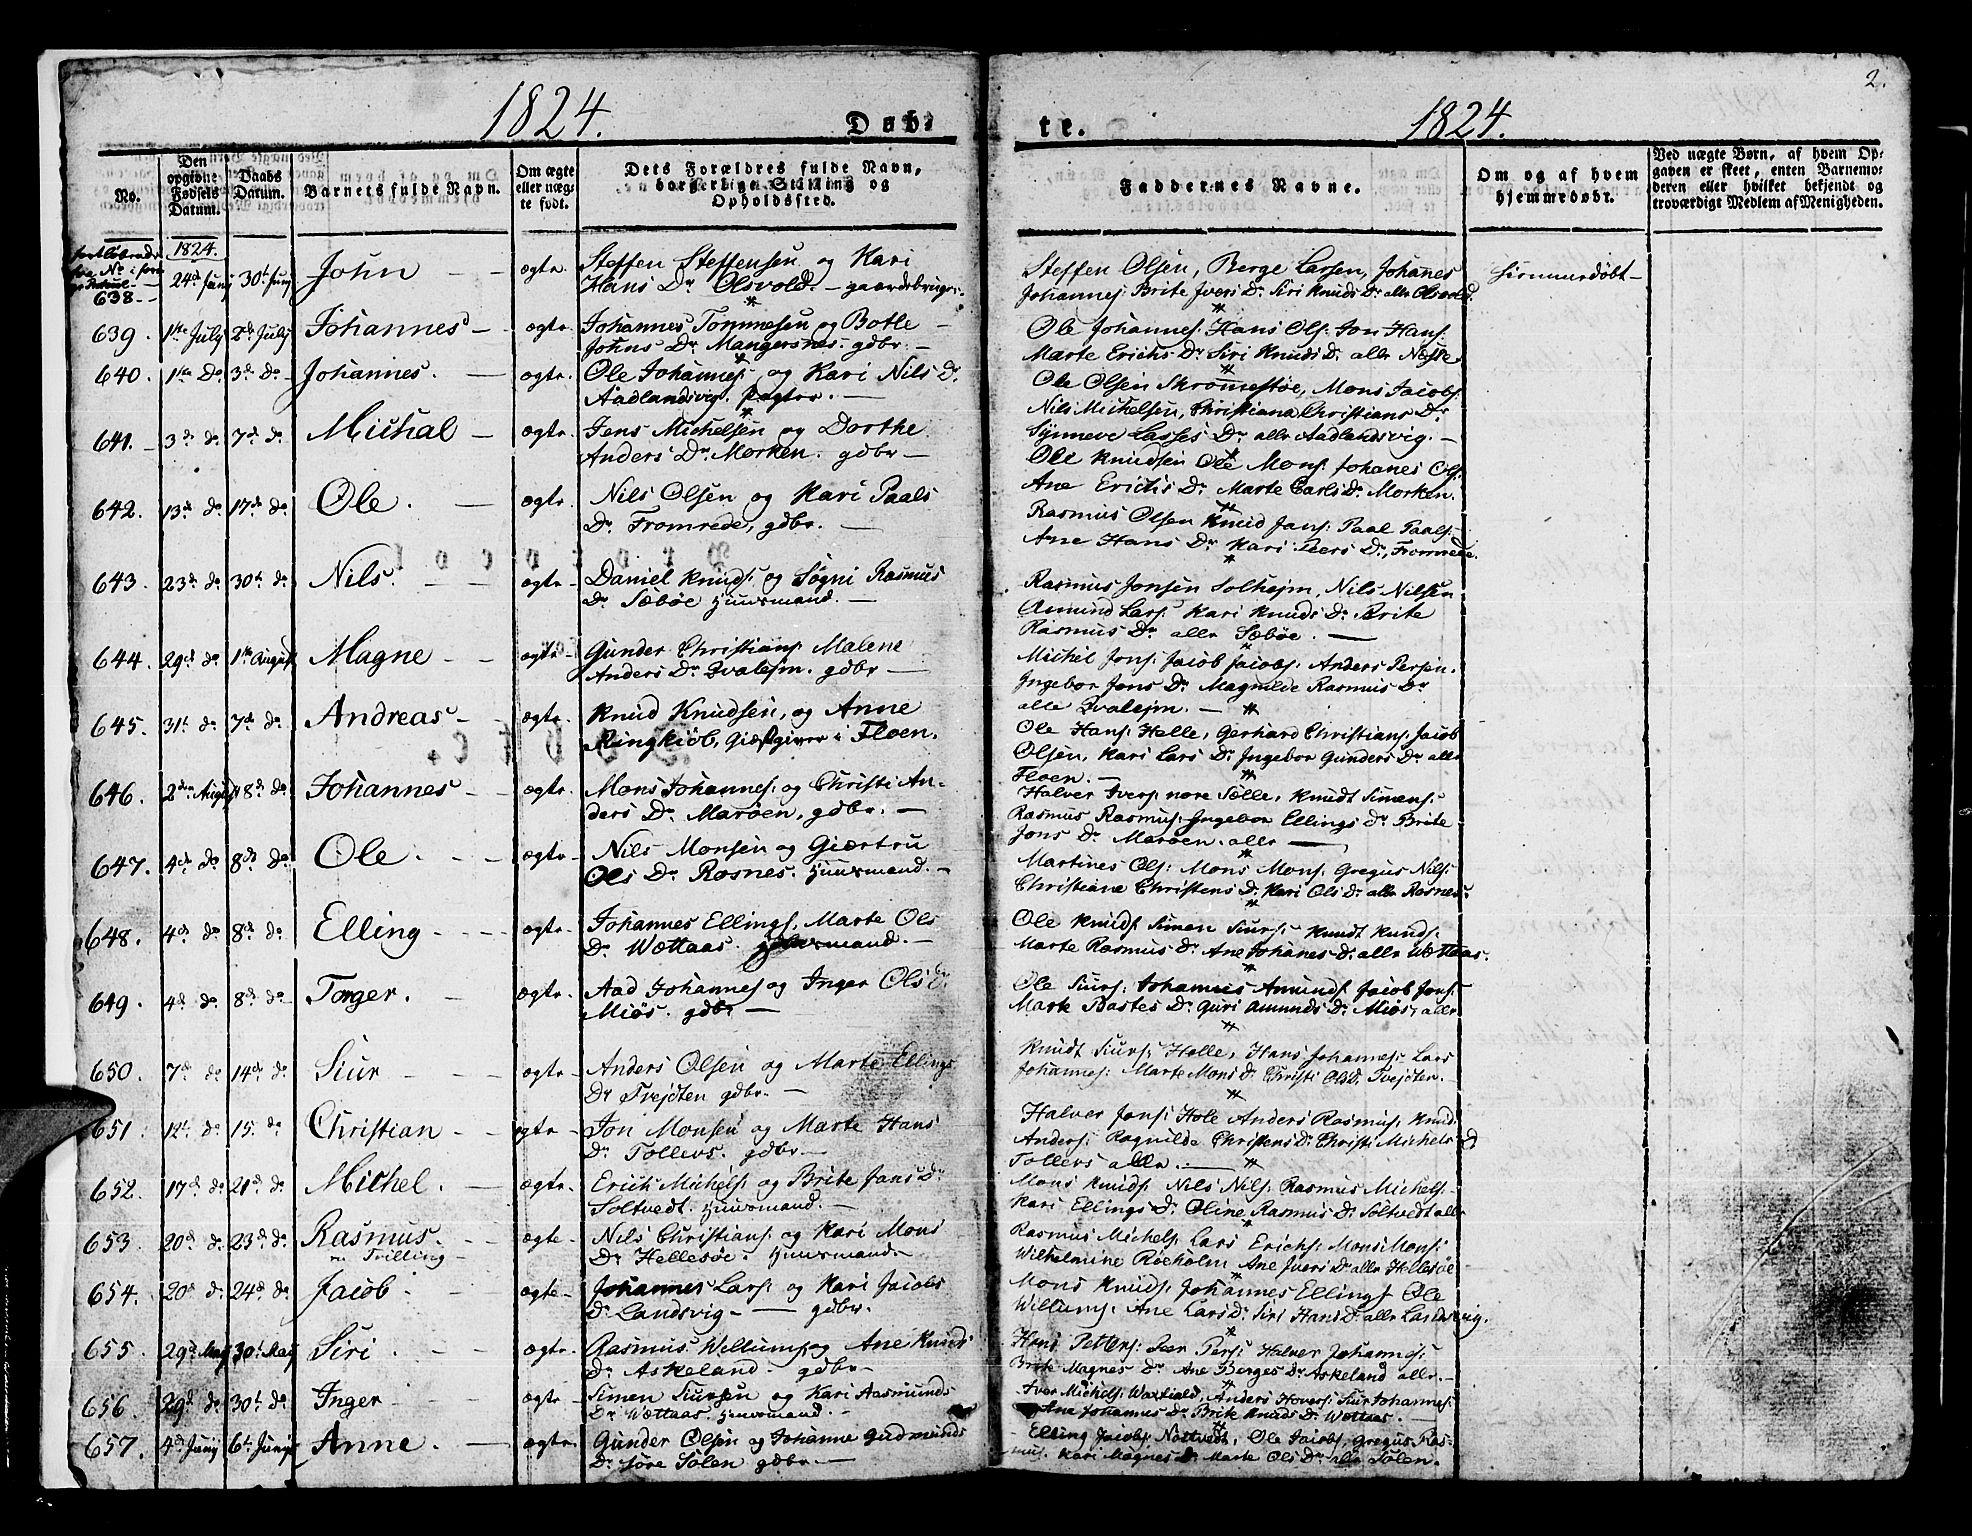 1824. Døb- te. 1824. 2.
No. Den opgivne Fødsels Datum. Daabs Datum. Barnets fulde Navn. Om ægte eller uægte født. Dets Forældres fulde Navn, borgerlige Stilling og Opholdssted. Faddernes Navne. Om og af hvem hjemmedøbt. Ved uægte Børn, af hvem Opgaven er skeet, enten Barnemoderen eller hvilket bekjendt og troværdigt Medlem af Menigheden.
1824.
638 24d Junj 30t Junj John ægte. Steffen Steffensen og Kari
Hans Dr Olsvold. gaardebruger.
Steffen Olsen, Berge Larsen, Johanes
Johannes: Brite Ivers Dr Siri Knuds Dr alle Olsvold.
hiemmedøbt
639. 1ste July 2de July Johannes ægte. Johannes Tommesen og Botle
Johns Dr Mangersnes. gdbr.
Ole Johannes: Hans Ols: Jon Hans:
Marte Erichs Dr Siri Knuds Dr alle Nesse
640. 1ste Do 3de Do Johannes. ægte. Ole Johannes: og Kari Nils Dr
Aadlandsvig.
Ole Olsen Skrømestøe, Mons Jacobs:
Nils Michelsen, Christiana Christians Dr
Synneve Lasses Dr alle Aadlandsvig.
641. 3de do 7de do Michal ægte. Jens Michelsen og Dorthe
Anders Dr Morken. gdbr
Ole Knudsen Ole Mons: Johanes Ols:
Ane Erichs Dr Marte Carls Dr Morken.
642. 13de do 17de do Ole. ægte. Nils Olsen og Kari Paals
Dr Fromrede, gdbr.
Rasmus Olsen Knud Jans: Paal Paals:
Ane Hans Dr Kari Peers Dr, Fromrede.
643. 23de do 30te do Nils. ægte. Daniel Knuds: og Søgni Rasmus
Dr Sæbøe Huusmand.
Rasmus Jonsen Solhejm, Nils Nilsen
Amund Lars: Kari Knuds Dr Brite
Rasmus Dr alle Sæbøe.
644. 29de do 1ste August Magne ægte Gunder Christians: Malene
Anders Dr Qvalejm. gdbr
Michel Jons: Jacob Jacobs: Anders Persen.
Ingebor Jons Dr Magnilde Rasmus Dr
alle Qvalejm.
645. 31t do 7de do Andreas ægte. Knud Knudsen, og Anne
Ringkiøb, Giæstgiver i Floen.
Ole Hans: Helle, Gerhard Christians: Jacob
Olsen, Kari Lars Dr Ingebor Gunders Dr alle
Floen.
646. 2den August 8de do Johannes ægte. Mons Johannes: og Christi An-
ders Dr Marøen, gdbr.
Halver Ivers: nore Sølle, Knudt Simens:
Rasmus Rasmus: Ingebor Ellings Dr Brite
Jons Dr Marøen. alle
647. 4de do 8de do Ole. ægte. Nils Monsen og Giærtru
Ols Dr Rosnes. Huusmand.
Martines Ols: Mons Mons: Gregus Nils:
Christiane Christens Dr Kari Ols Dr alle Rosnes.
648. 4de do 8de do Elling ægte. Johannes Ellings: Marte Ols
Dr Wættaas.
Ole Knuds: Simen Siurs: Knudt Knuds:
Marte Rasmus Dr Ane Johanes Dr alle Wættaas.
649. 4de do 8de do Torger. ægte. Aad Johannes: og Inger Ols Dr
Miøs. gdbr
Ole Siurs: Johannes Amunds: Jacob Jons:
Marte Bastes Dr Guri Amunds Dr Miøs, alle
650. 7de do 14de do Siur ægte Anders Olsen og Marte Ellings
Dr Tvejten gdbr.
Knudt Siurs: Helle, Hans Johannes: Lars
Johannes: Marte Mons Dr Christi Ols Dr Tvejten.
651. 12t do 15. do Christian ægte Jon Monsen og Marte Hans
Dr Tollevs. gdbr.
Halver Jons: Hole Anders Rasmus: Knud
Anders: Ragnilde Christens Dr Christi Michels D
Tollevs alle.
652. 17de do 21de do Michel. ægte. Erich Michels: og Brite Jans Dr
Soltvedt. Huusmand.
Mons Knuds: Nils Nils: Rasmus Michels:
Kari Ellings Dr Oline Rasmus Dr Soltvedt alle
653. 20de do 23de do Rasmus. ægte Nils Christians: og Kari Mons
en Trilling Dr Hellesøe Huusmand.
Rasmus Michels: Lars Erichs: Mons Mons:
Wilhelmine Røeholm Ane Ivers Dr alle Hellesøe
654. 20de do 24de do Jacob ægte. Johannes Lars: og Kari Jacobs
Dr Landsvig gdbr.
Mons Knuds: Johannes Ellings: Ole
Willums: Ane Lars Dr Siri Hans Dr alle Landsvig.
655. 29de Maj 30t Maj Siri. ægte. Rasmus Willums: og Ane Knuds
Dr Askeland gdbr
Hans Petters: Peer Pers: Halver Johannes:
Brite Magnes Dr Ane Berges Dr Askeland alle.
656. 29de do 30t do Inger ægte. Simen Siursen og Kari Aasmunds
Dr Wættaas. Huusmand.
Iver Michels: Anders Hovers: Siur Johannes:
Ane Johannes Dr Brite Knuds Dr Wættaas.
657. 4de Junj 6t Junj Anne. ægte. Gunder Olsen og Johanne Gudmunds
Dr søre Sølen gdbr.
Elling Jacobs: Nøttvedt, Ole Jacobs: Gregus Ras-
mus. Kari Magnes Dr Marte Ols Dr alle Sølen.